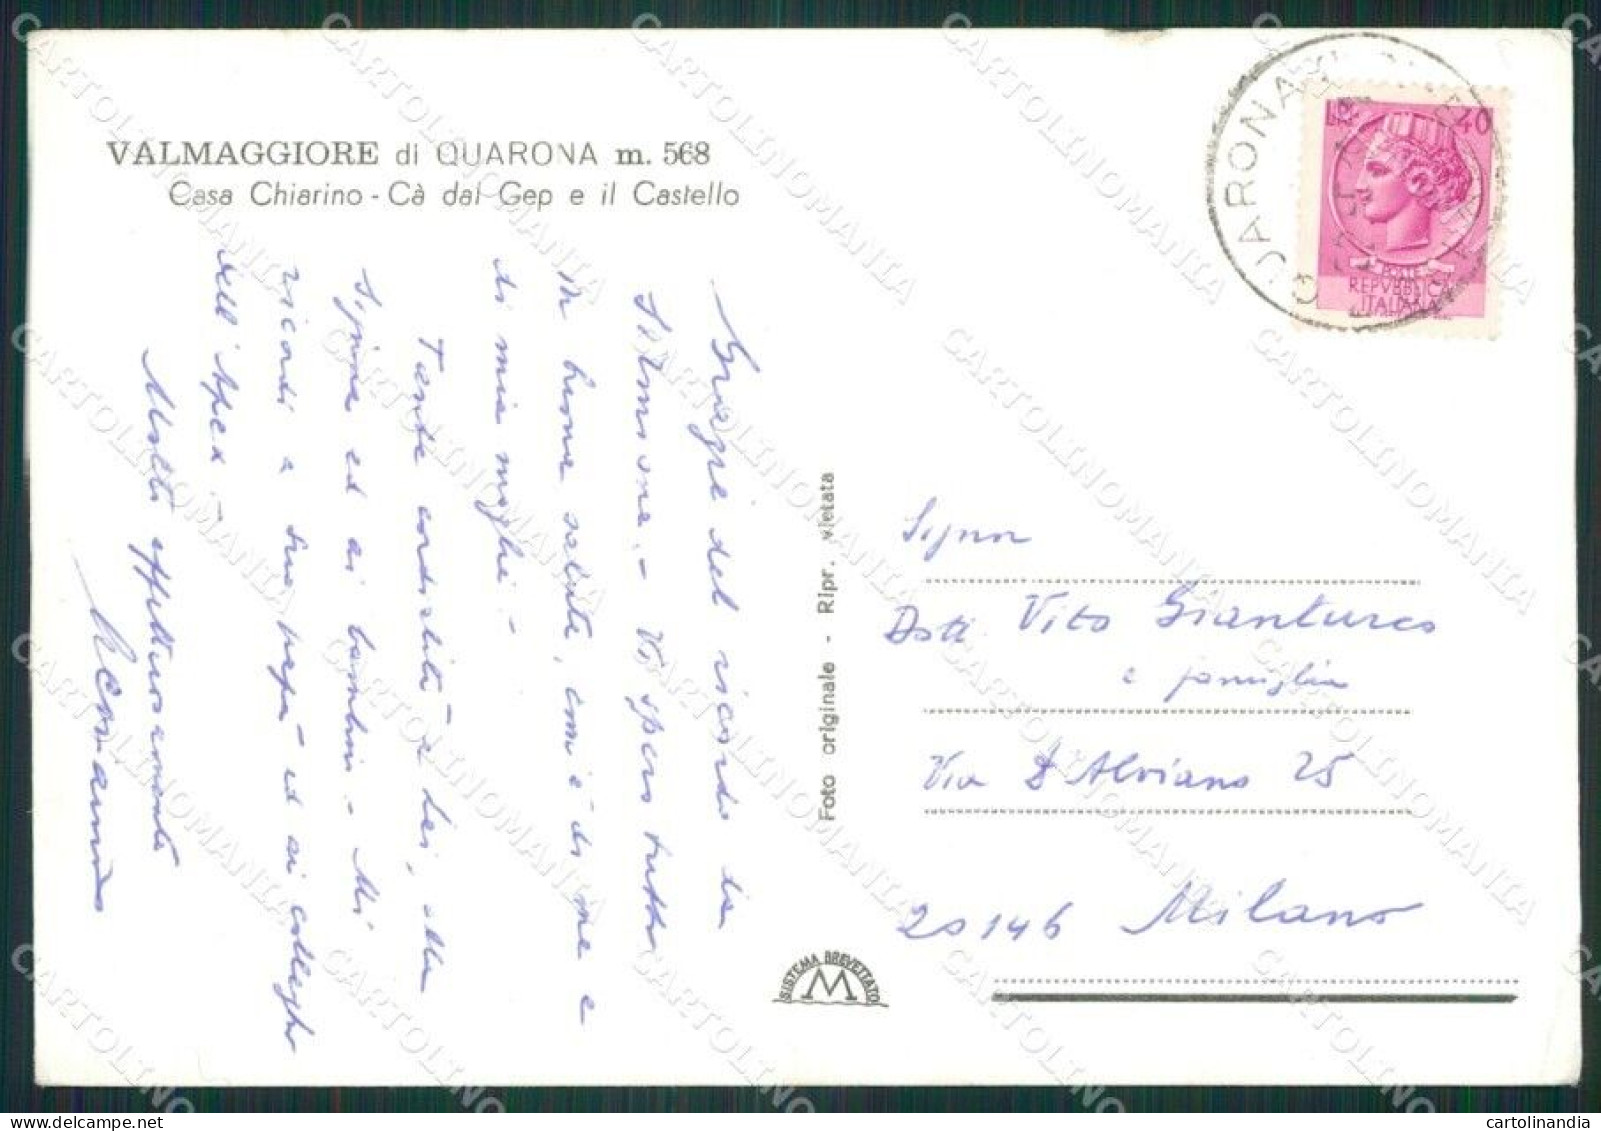 VALMAGGIORE di QUARONA m. 568
Casa Chiarino - Cà dal Gep e il Castello
Grazie del ricordo da
Sirmione. - Vi spero tutti
in buona salute, com'è di me e
di mia moglie. -
Tante cordialità a Lei, alla
Signora ed ai bambini. - Mi
ricordi a suo papà ed ai colleghi
dell'Apea -
Molti affettuosamente
Foto originale - Ripr. vietata
SISTEMA BREVETTATO
M
QUARONA
L. 40
POSTE
REPVBBLICA
ITALIANA
Signor
Dott. Vito Gianturco
e famiglia
Via D'Alviano 25
20146 Milano
CARTOLINOMANIA
cartolinandia